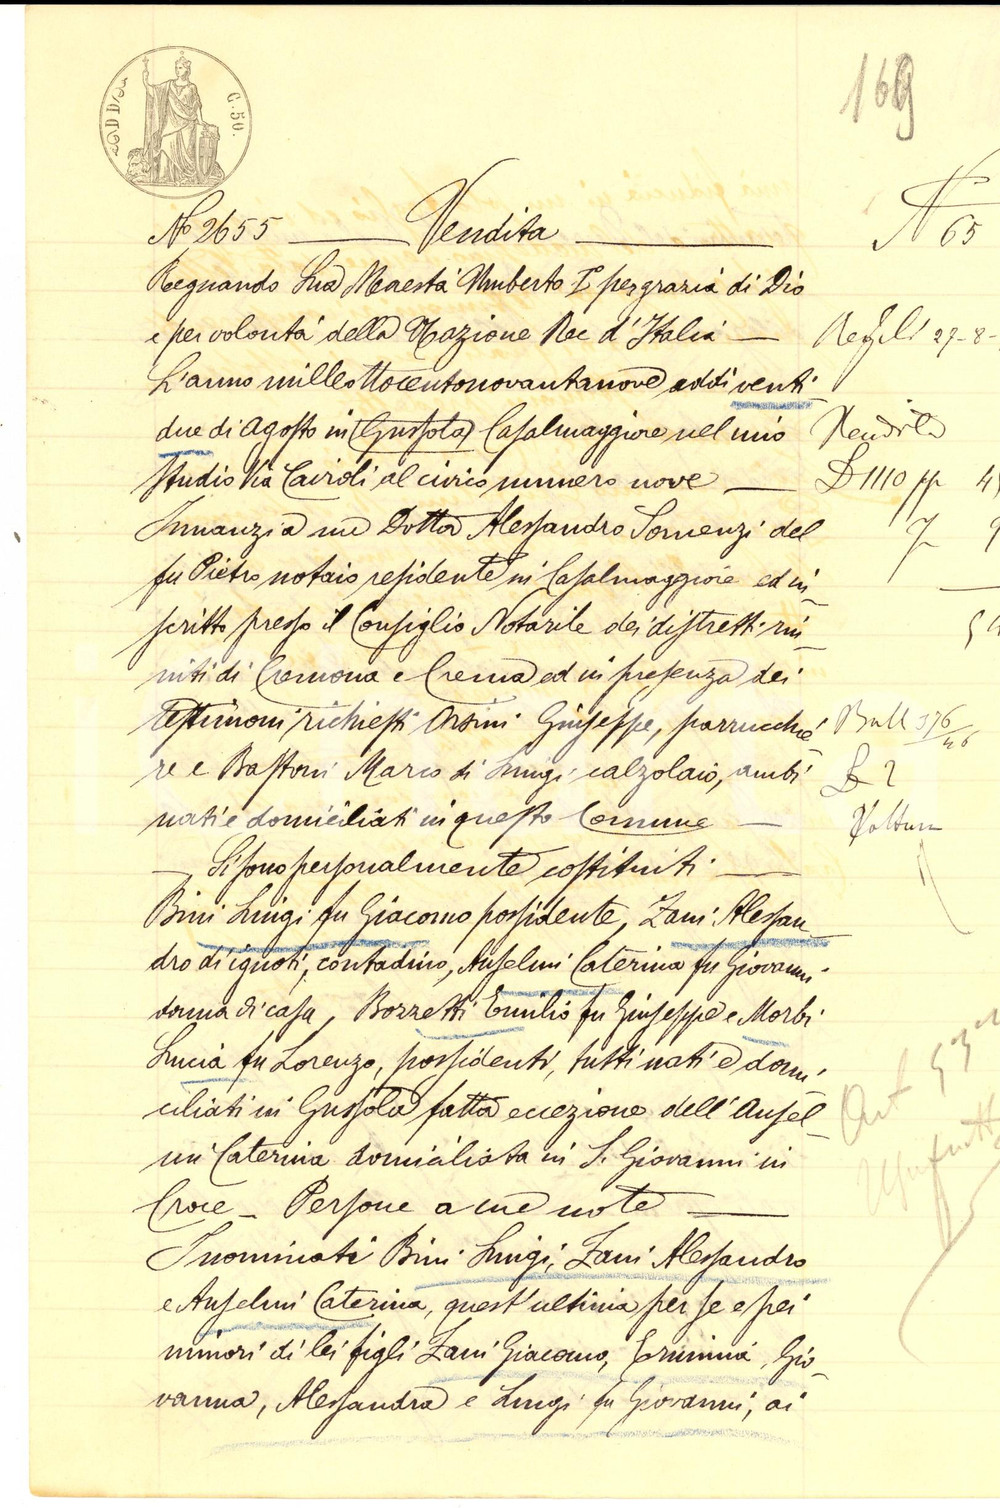 169
C. 50.
N° 2655 Vendita
N 65
Regnando Sua Maestà Umberto I° per grazia di Dio
e per volontà della Nazione Re d'Italia
27-8-
L'anno milleottocentonovantanove addì venti
due di Agosto in (Gussola) Casalmaggiore nel mio
Vendita
studio Via Cairoli al civico numero nove
£ 1110 pp
Innanzi a me Dottor Alessandro Somenzi del
fu Pietro notaio residente in Casalmaggiore ed in
scritto presso il Consiglio Notarile dei distretti riu
niti di Cremona e Crema ed in presenza dei
testimoni richiesti Orsini Giuseppe, parrucchie
Boll 376/46
re e Bastoni Marco di Luigi calzolaio, ambi
£ 2
nati e domiciliati in questo Comune
Voltura
Si sono personalmente costituiti
Bini Luigi fu Giacomo possidente, Zani Alessan
dro di ignoti, contadino, Anselmi Caterina fu Giovanni
donna di casa, Bozzetti Emilio fu Giuseppe e Morbi
Lucia fu Lorenzo, possidenti, tutti nati e domi
ciliati in Gussola fatta eccezione dell'Ansel
mi Caterina domiciliata in S. Giovanni in
Croce - Persone a me note
Art
Usufrutto
I nominati Bini Luigi, Zani Alessandro
e Anselmi Caterina, quest'ultima per se e pei
minori di lei figli Zani Giacomo, Erminia, Gio
vanna, Alessandra e Luigi fu Giovanni, ai